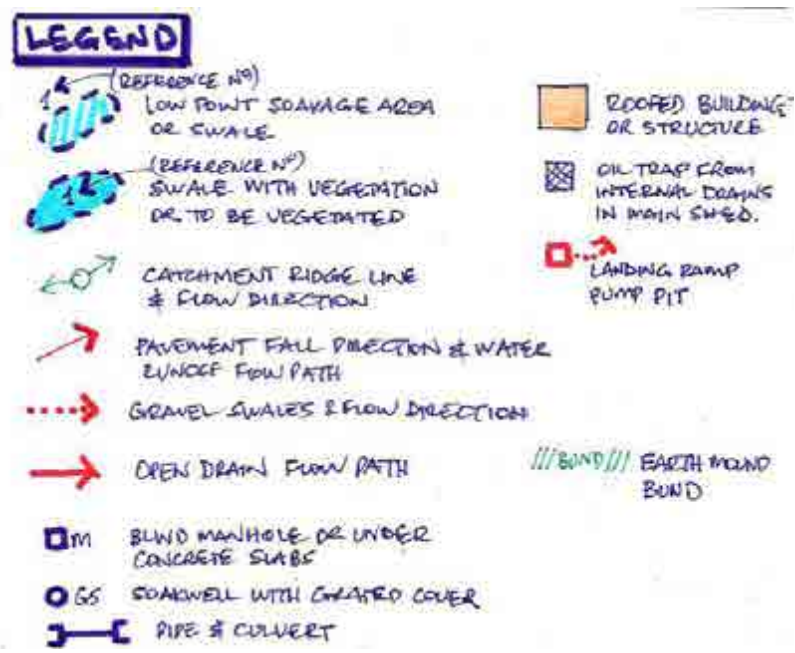 LEGEND
(REFERENCE Nº)
1
LOW POINT SOAKAGE AREA
OR SWALE
(REFERENCE Nº)
1
SWALE WITH VEGETATION
OR TO BE VEGETATED
CATCHMENT RIDGE LINE
& FLOW DIRECTION
PAVEMENT FALL DIRECTION & WATER
RUNOFF FLOW PATH
GRAVEL SWALES & FLOW DIRECTION
OPEN DRAIN FLOW PATH
M BLIND MANHOLE OR UNDER
CONCRETE SLABS
GS SOAKWELL WITH GRATED COVER
PIPE & CULVERT
ROOFED BUILDING
OR STRUCTURE
OIL TRAP FROM
INTERNAL DRAINS
IN MAIN SHED.
LANDING RAMP
PUMP PIT
///BUND/// EARTH MOUND
BUND